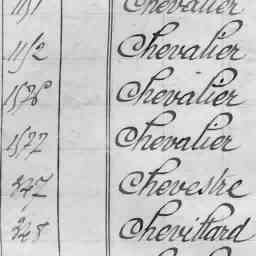 1151 Chevalier
1152 Chevalier
1576 Chevalier
1577 Chevalier
247 Chevestre
248 Chevillard